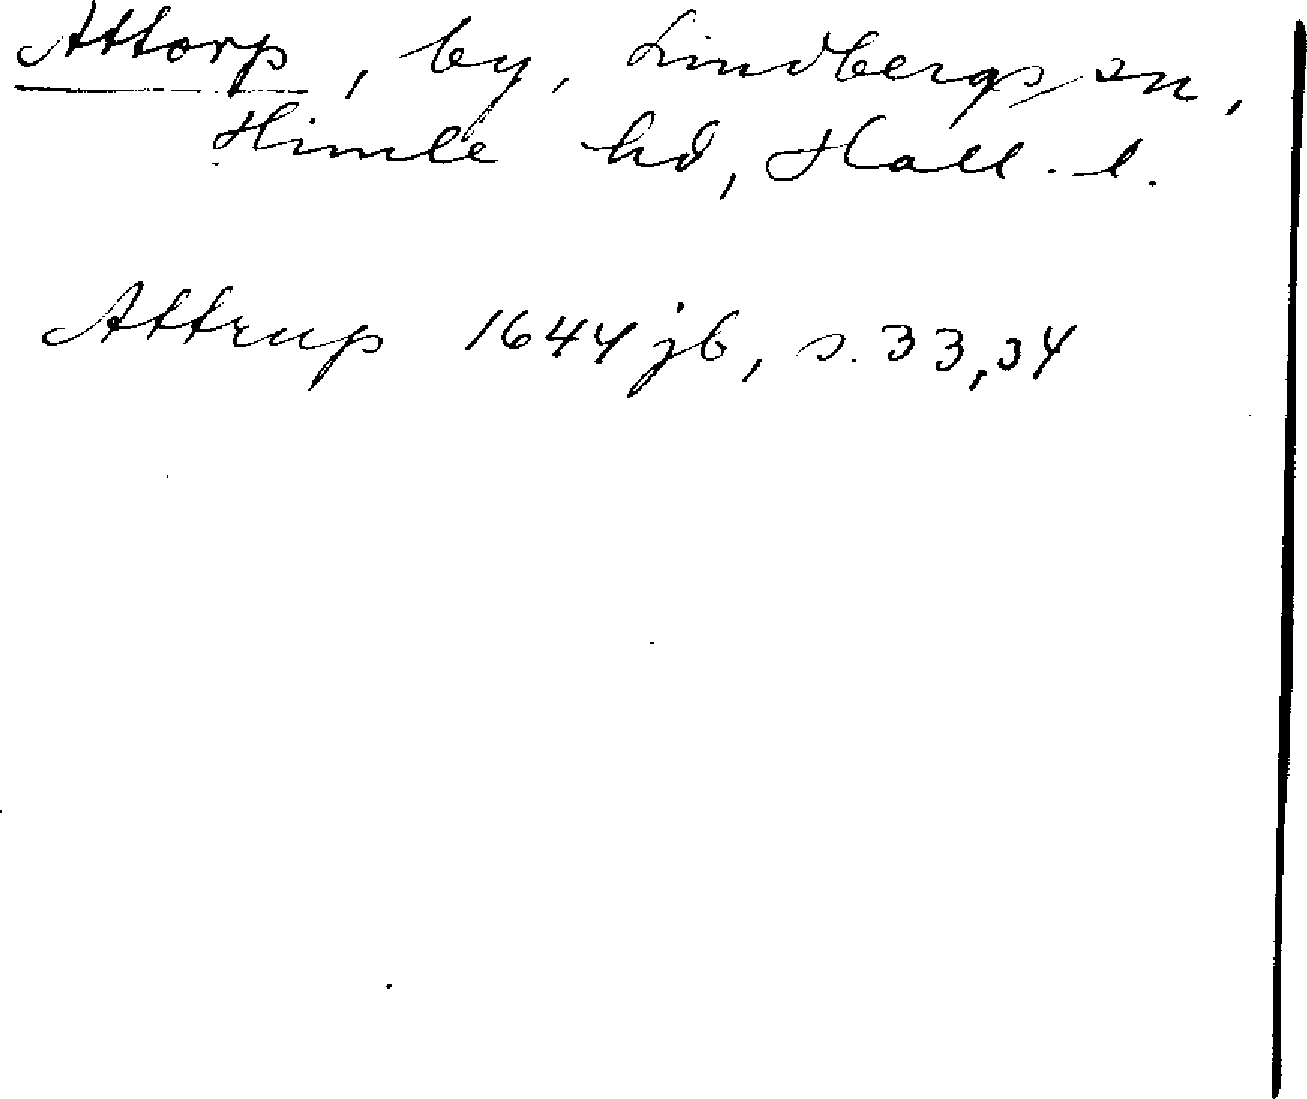 Attorp, by, Lindbergs sn,
Himle hd, Hall. l.
Attrup 1644 jb, s. 33, 34